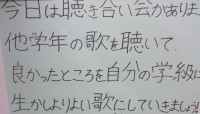 今日は聴き合い会がありま
他学年の歌を聴いて、
良かったところを自分の学級に
生かしよりよい歌にしていきましょう